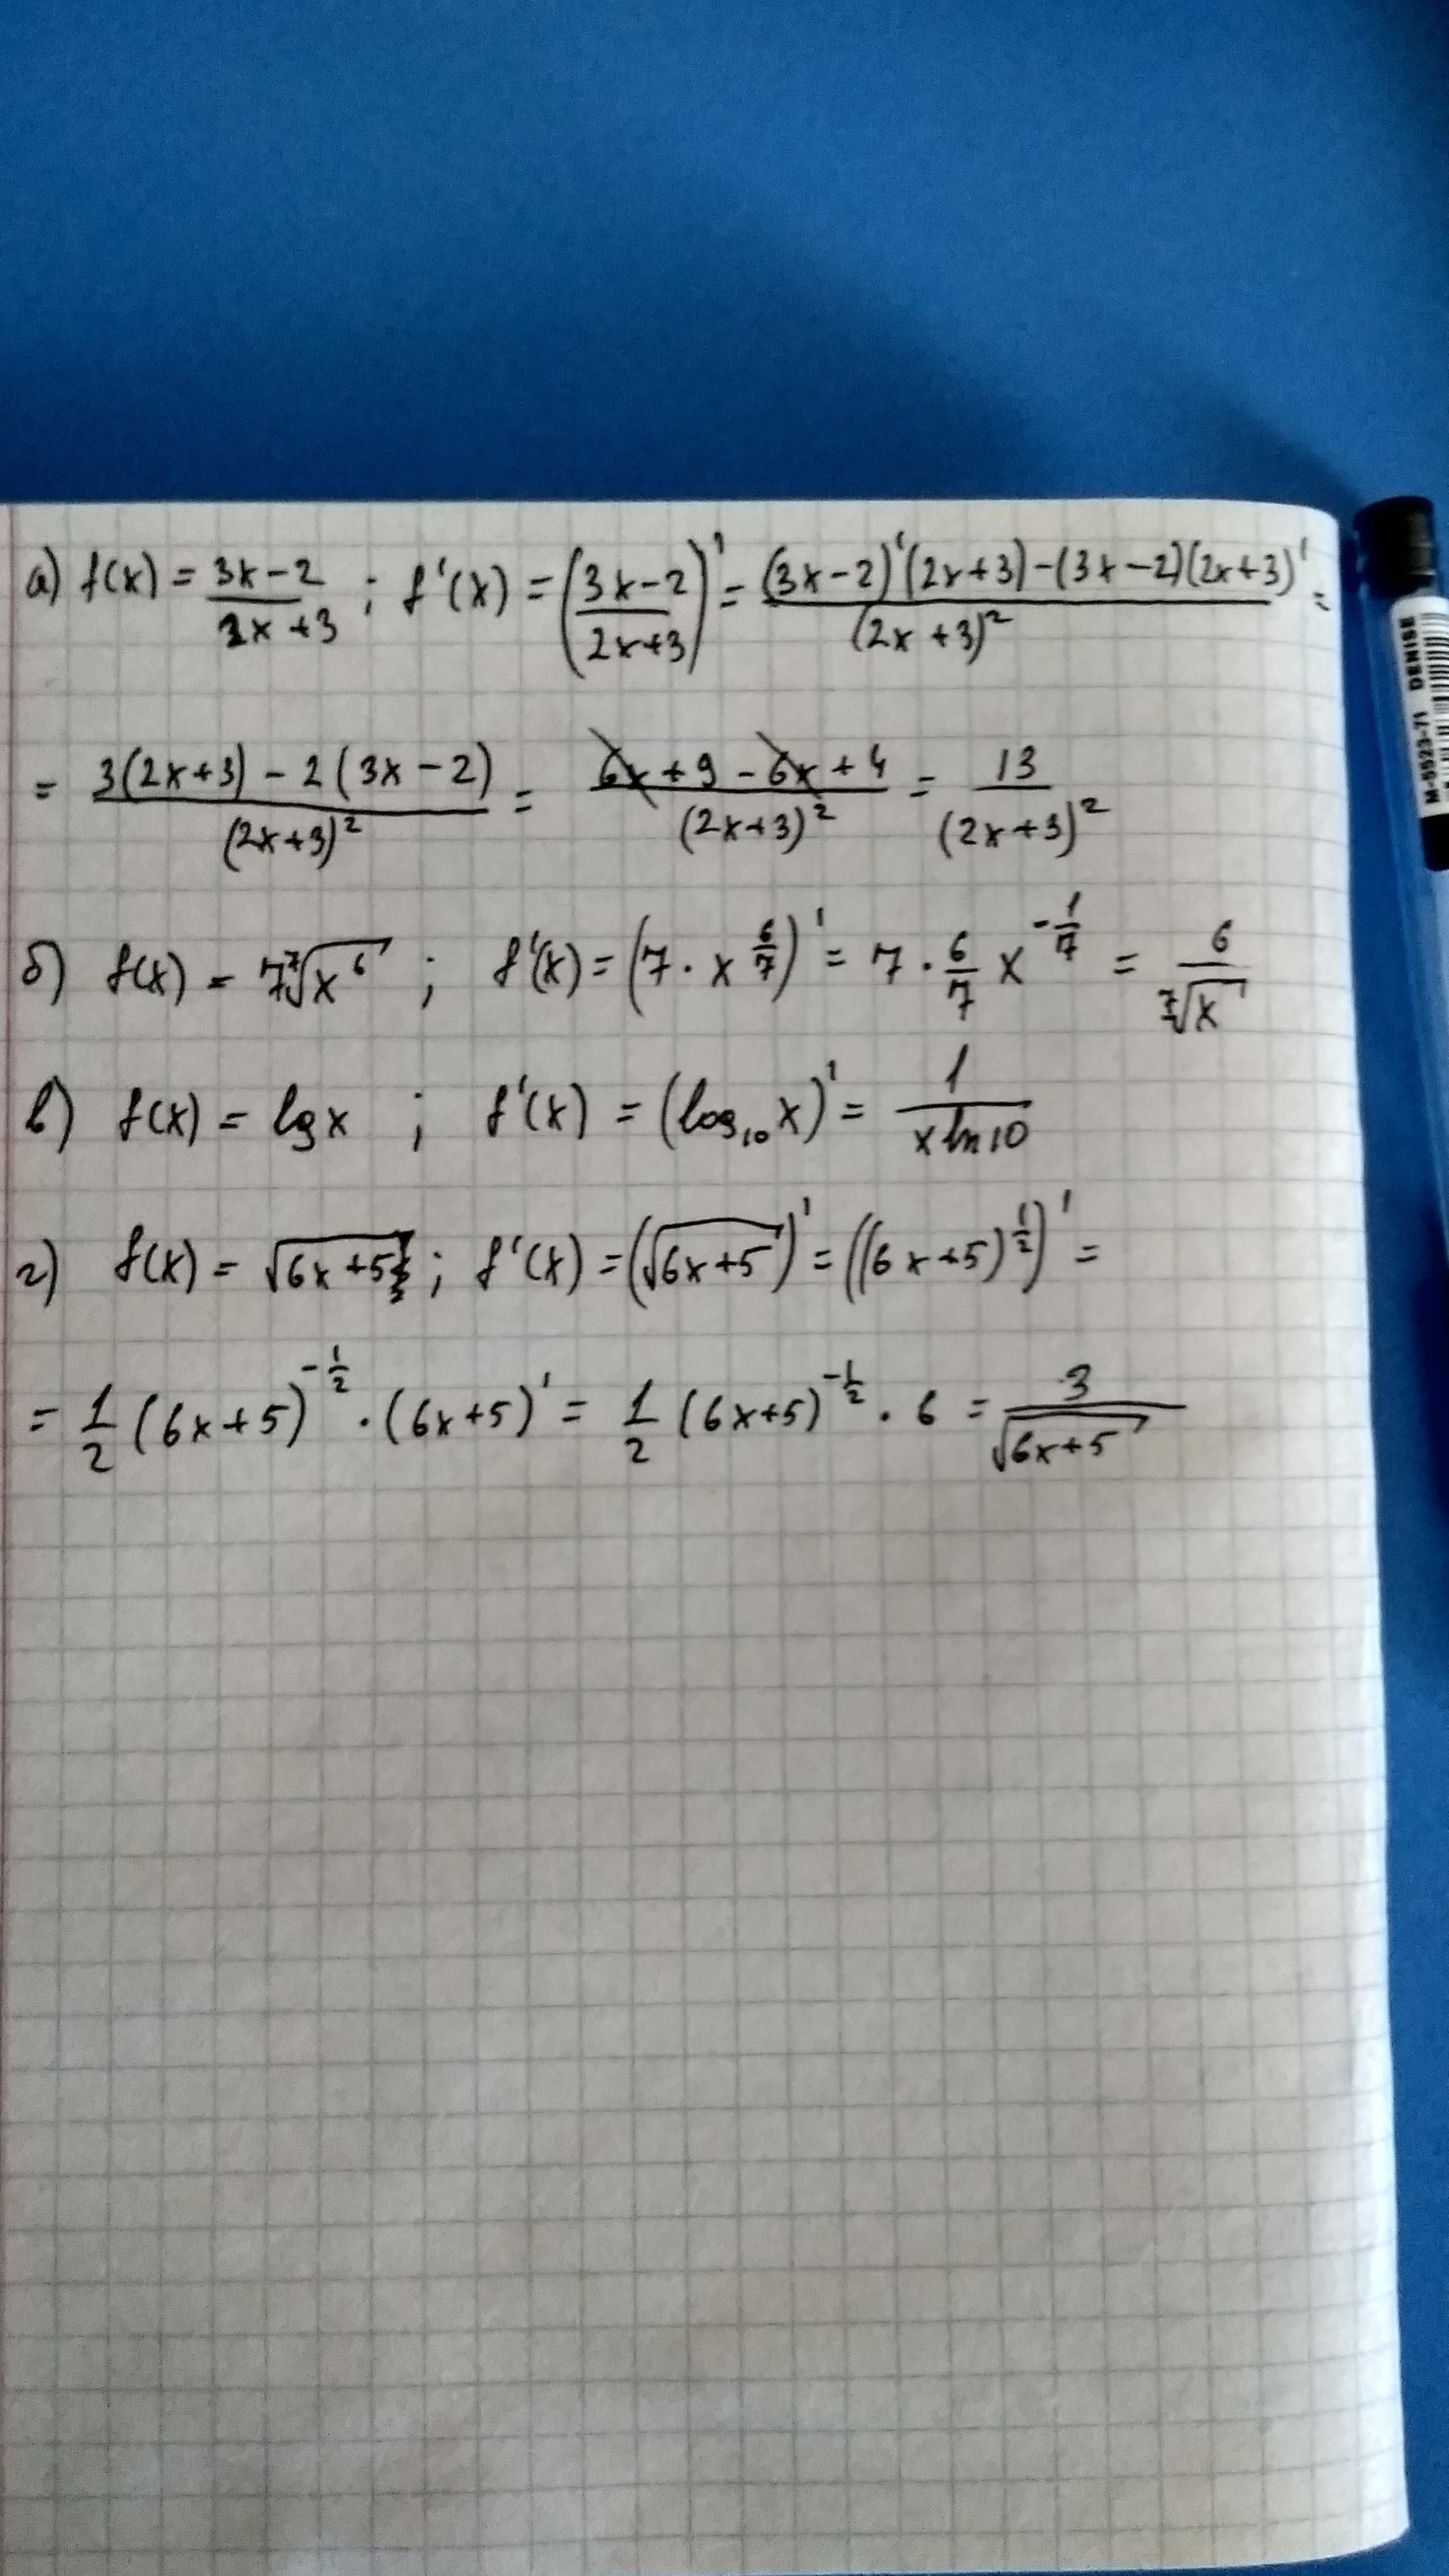 а) f(x) = (3x-2)/(2x+3) ; f'(x) = ((3x-2)/(2x+3))' = ((3x-2)'(2x+3)-(3x-2)(2x+3)')/(2x+3)² =
= (3(2x+3) - 2(3x-2))/(2x+3)² = (6x+9-6x+4)/(2x+3)² = 13/(2x+3)²
б) f(x) = 7⁷√x⁶ ; f'(x) = (7·x^(6/7))' = 7·6/7 x^(-1/7) = 6/⁷√x
в) f(x) = lg x ; f'(x) = (log₁₀x)' = 1/(x ln10)
г) f(x) = √(6x+5) ; f'(x) = (√(6x+5))' = ((6x+5)^(1/2))' =
= 1/2 (6x+5)^(-1/2) · (6x+5)' = 1/2 (6x+5)^(-1/2) · 6 = 3/√(6x+5)
DENISE
M-5523-71